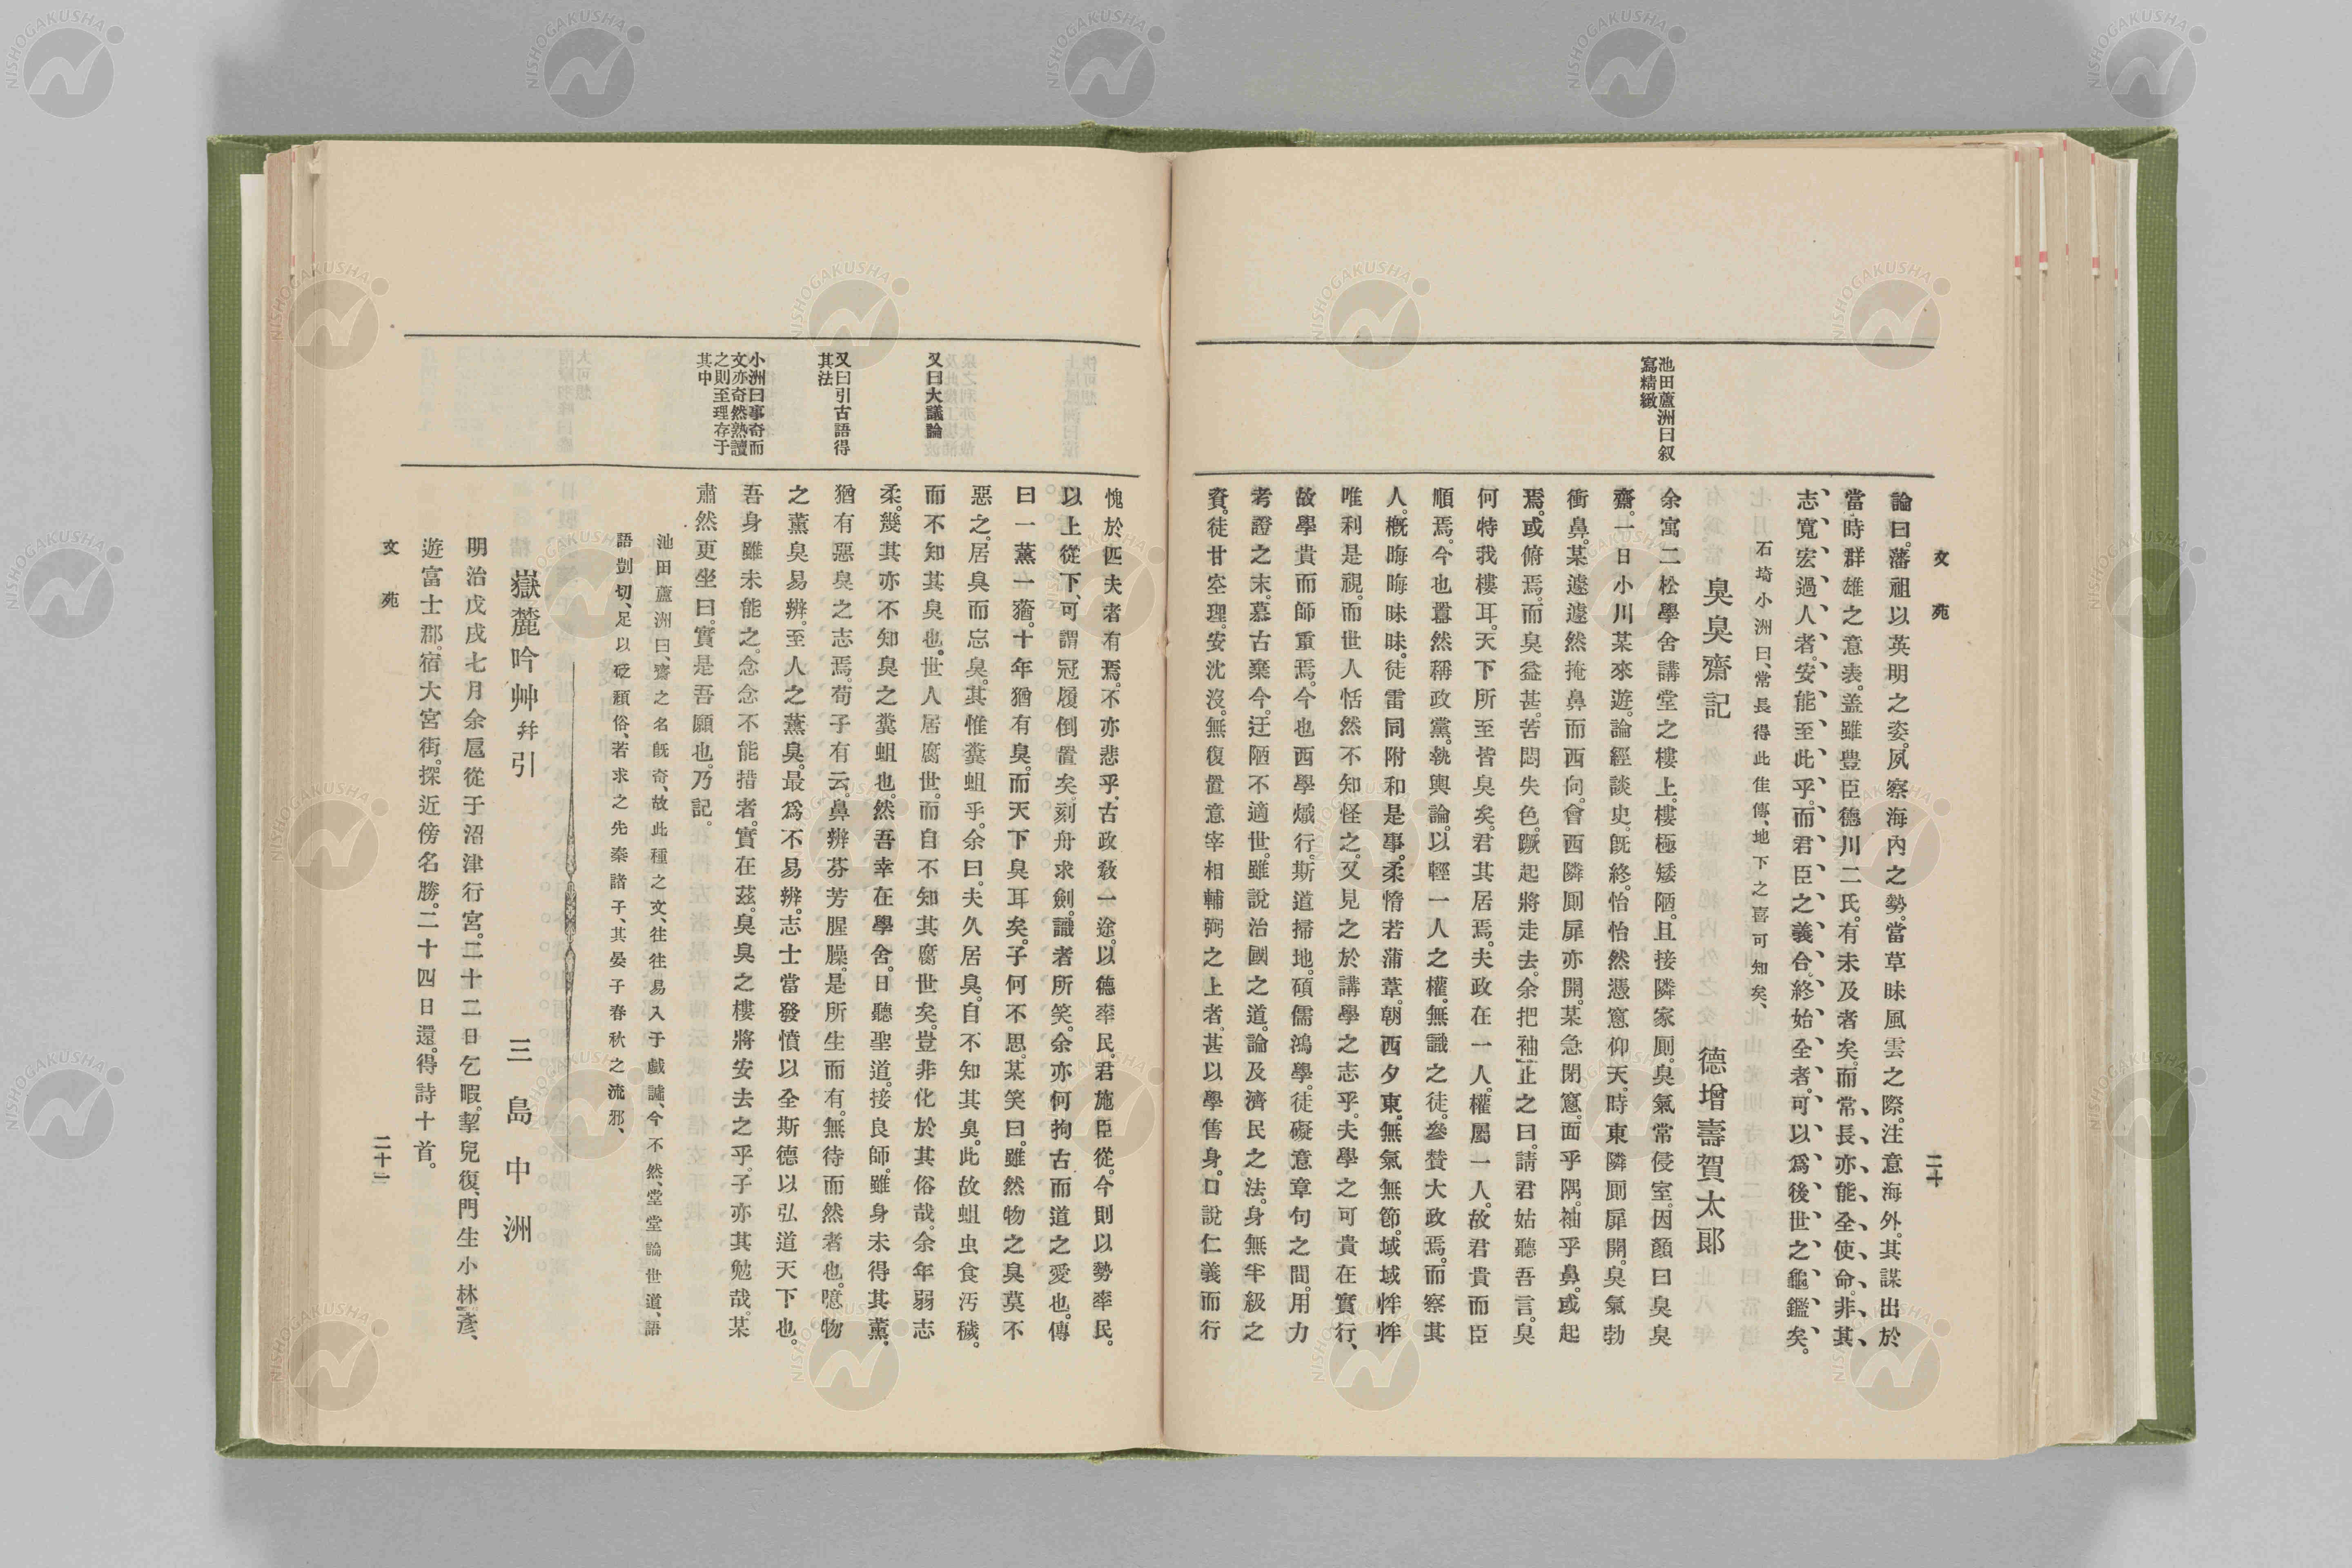 文苑
二十
論曰。藩祖以英明之姿。夙察海內之勢。當草昧風雲之際。注意海外。其謀出於
當時群雄之意表。蓋雖豊臣德川二氏。有未及者矣。而常長亦能全使命。非其
志寬宏過人者。安能至此乎。而君臣之義合。終始全者。可以爲後世之龜鑑矣。
石埼小洲曰、常長得此佳傳、地下之喜可知矣、
臭臭齋記
德增壽賀太郎
池田蘆洲曰叙
寫精緻
余寓二松學舍講堂之樓上。樓極矮陋。且接隣家厠。臭氣常侵室。因顏曰臭臭
齋。一日小川某來遊。論經談史。既終。怡怡然憑窓仰天。時東隣厠扉開。臭氣勃
衝鼻。某遽遽然掩鼻而西向。會西隣厠扉亦開。某急閉窓。面乎隅。袖乎鼻。或起
焉。或俯焉。而臭益甚。苦悶失色。蹶起將走去。余把袖止之曰。請君姑聽吾言。臭
何特我樓耳。天下所至皆臭矣。君其居焉。夫政在一人。權屬一人。故君貴而臣
順焉。今也囂然稱政黨。執輿論。以輕一人之權。無識之徒。參賛大政焉。而察其
人。槪晦晦昧昧。徒雷同附和是事。柔惰若蒲葦。朝西夕東。無氣無節。域域恈恈
唯利是視。而世人恬然不知怪之。又見之於講學之志乎。夫學之可貴在實行、
故學貴而師重焉。今也西學熾行。斯道掃地。碩儒鴻學。徒礙意章句之間。用力
考證之末。慕古棄今。迂陋不適世。雖說治國之道。論及濟民之法。身無半級之
資。徒甘空理。安沈沒。無復置意宰相輔弼之上者。甚以學售身。口說仁義而行
愧於匹夫者有焉。不亦悲乎、古政敎一途。以德率民。君施臣從。今則以勢率民。
以上從下、可謂冠履倒置矣。刻舟求劍。識者所笑。余亦何拘古而道之愛也。傳
曰一薰一蕕。十年猶有臭。而天下臭耳矣。子何不思。某笑曰。雖然物之臭莫不
惡之。居臭而忘臭。其惟糞蛆乎。余曰。夫久居臭。自不知其臭。此故蛆虫食汚穢。
又曰大議論
而不知其臭也。世人居腐世。而自不知其腐世矣。豈非化於其俗哉。余年弱志
柔。幾其亦不知臭之糞蛆也。然吾幸在學舍。日聽聖道。接良師。雖身未得其薰。
又曰引古語得
其法
猶有惡臭之志焉。荀子有云。鼻辨芬芳腥臊。是所生而有。無待而然者也。噫物
之薰臭易辨。至人之薰臭。最爲不易辨。志士當發憤以全斯德以弘道天下也。
小洲曰事奇而
文亦奇然熟讀
之則至理存于
其中
吾身雖未能之。念念不能措者。實在茲。臭臭之樓將安去之乎。子亦其勉哉。某
肅然更坐曰。實是吾願也。乃記。
池田蘆洲曰、齋之名既奇、故此種之文、往往易入于戲謔、今不然、堂堂論世道、語
語剴切、足以砭頹俗、若求之先秦諸子、其晏子春秋之流邪、
嶽麓吟艸幷引
三島中洲
明治戊戌七月余扈從于沼津行宮。二十二日乞暇。挈兒復、門生小林彥、
遊富士郡。宿大宮街。探近傍名勝。二十四日還。得詩十首。
文苑
二十一